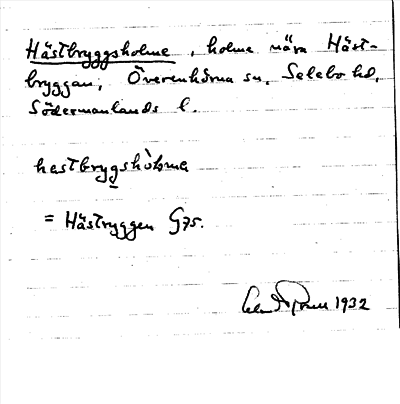 Hästbryggsholme, holme nära Häst-
bryggan; Överenhörna sn. Selebo hd,
Södermanlands l.
hastbrygshòlma
= Hästryggen G75.
1932